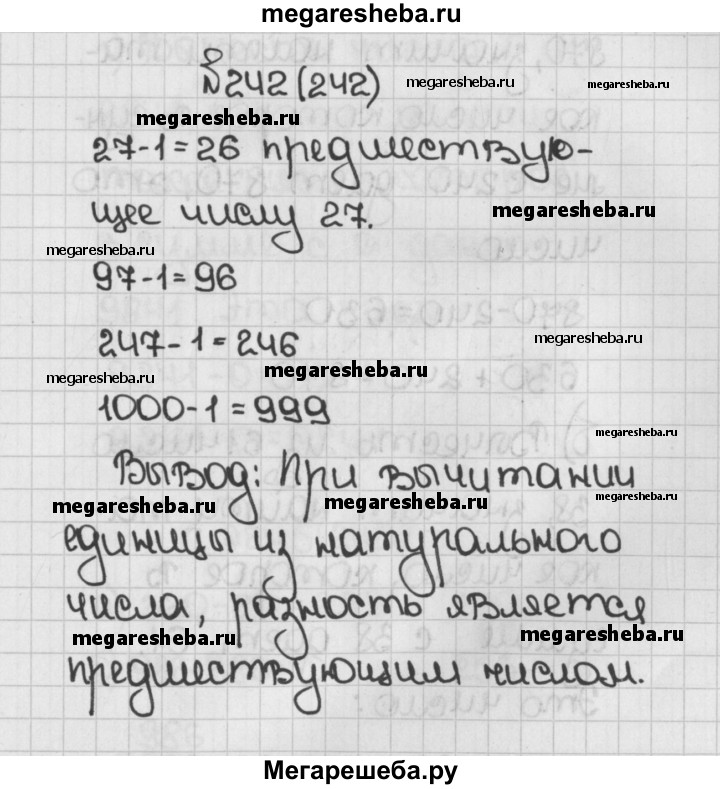 megaresheba.ru
№242 (242)
megaresheba.ru
megaresheba.ru
megaresheba.ru
27-1=26 предшествую-
щее числу 27.
megaresheba.ru
megaresheba.ru
97-1=96
247-1=246
megaresheba.ru
megaresheba.ru
megaresheba.ru
1000-1=999
Вывод: При вычитании
megaresheba.ru
megaresheba.ru
megaresheba.ru
единицы из натурального
числа, разность является
megaresheba.ru
megaresheba.ru
предшествующим числом.
Мегарешеба.ру